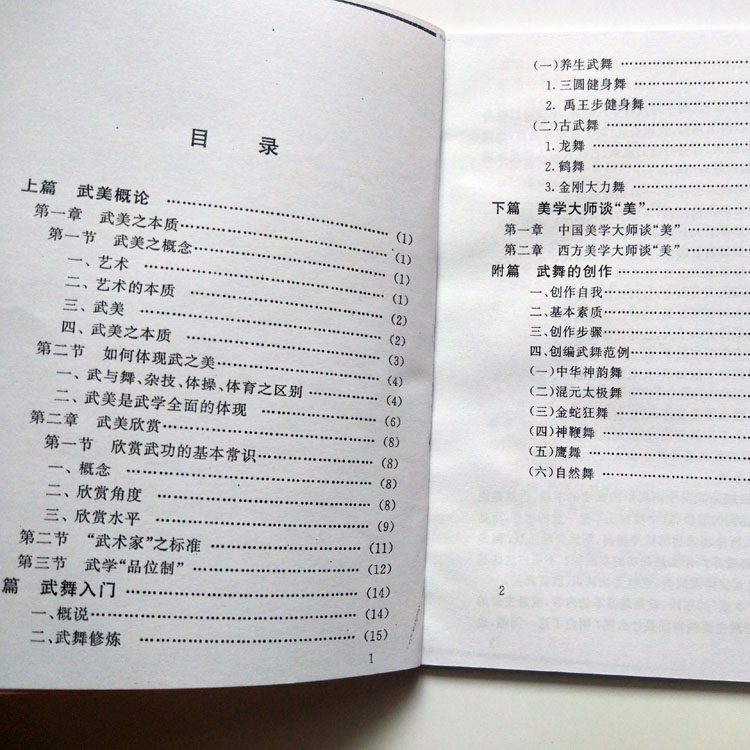 目 录
上篇 武美概论 …………………… (1)
第一章 武美之本质 …………………… (1)
第一节 武美之概念 …………………… (1)
一、艺术 …………………… (1)
二、艺术的本质 …………………… (2)
三、武美 …………………… (2)
四、武美之本质 …………………… (3)
第二节 如何体现武之美 …………………… (4)
一、武与舞、杂技、体操、体育之区别 …………… (4)
二、武美是武学全面的体现 …………………… (6)
第二章 武美欣赏 …………………… (8)
第一节 欣赏武功的基本常识 …………………… (8)
一、概念 …………………… (8)
二、欣赏角度 …………………… (8)
三、欣赏水平 …………………… (9)
第二节 “武术家”之标准 …………………… (11)
第三节 武学“品位制” …………………… (12)
篇 武舞入门 …………………… (14)
一、概说 …………………… (14)
二、武舞修炼 …………………… (15)
1
(一)养生武舞 ……………
1.三圆健身舞 ……………
2. 禹王步健身舞 ……………
(二)古武舞 ……………
1.龙舞 ……………
2.鹤舞 ……………
3.金刚大力舞 ……………
下篇 美学大师谈“美” ……………
第一章 中国美学大师谈“美” ……………
第二章 西方美学大师谈“美” ……………
附篇 武舞的创作 ……………
一、创作自我 ……………
二、基本素质 ……………
三、创作步骤 ……………
四、创编武舞范例 ……………
(一)中华神韵舞 ……………
(二)混元太极舞 ……………
(三)金蛇狂舞 ……………
(四)神鞭舞 ……………
(五)鹰舞 ……………
(六)自然舞 ……………
2